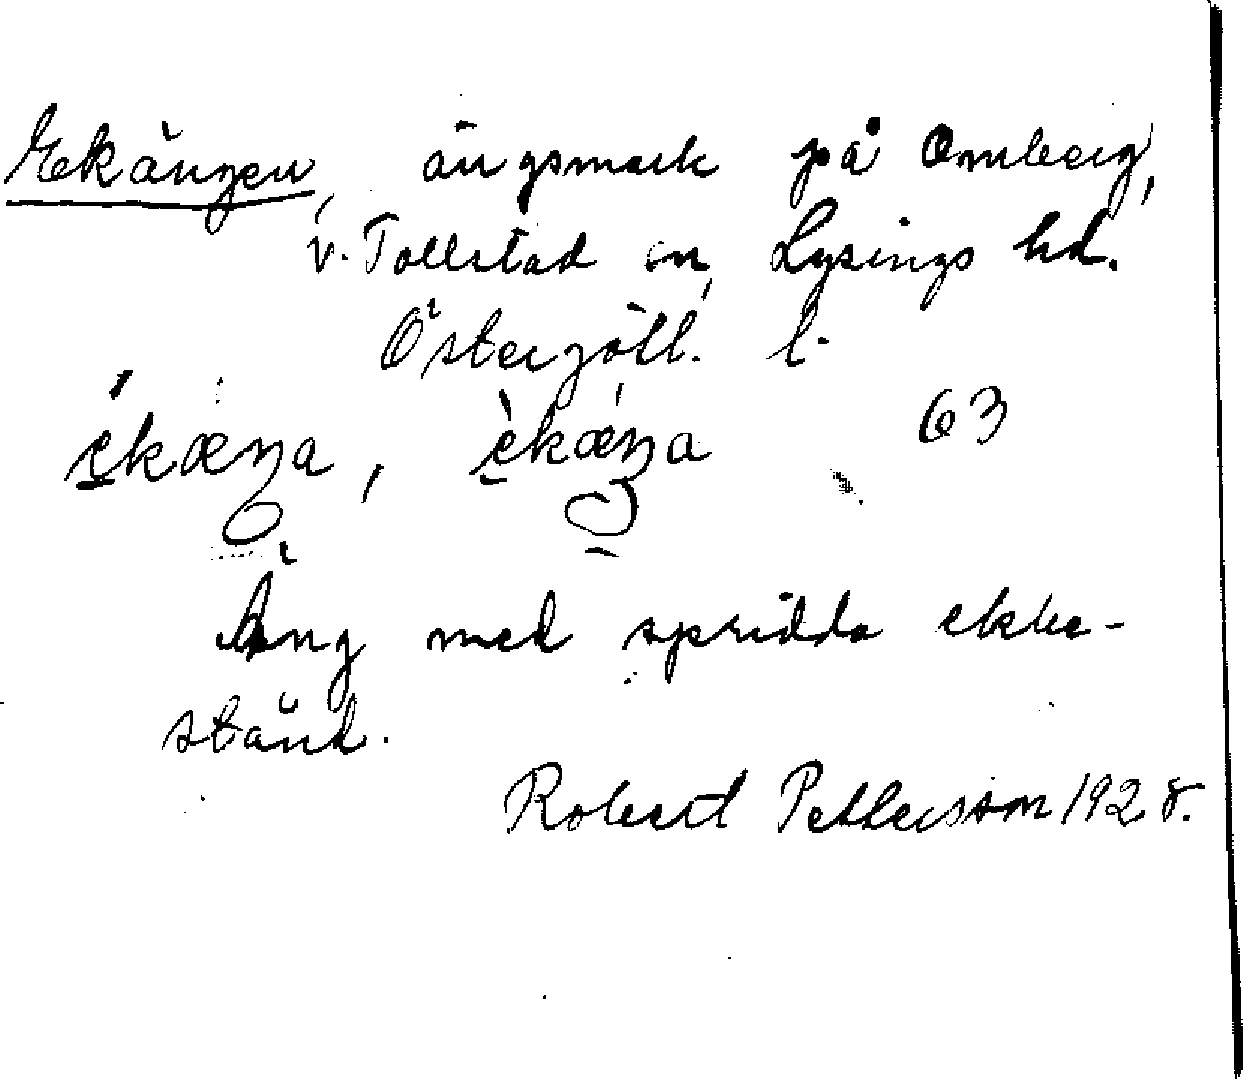 Ekängen, ängsmark på Omberg,
v. Tollstad sn, Lysings hd.
Östergötl. l.
63
Äng med spridda ekbe-
stånd.
Robert Pettersson 1928.